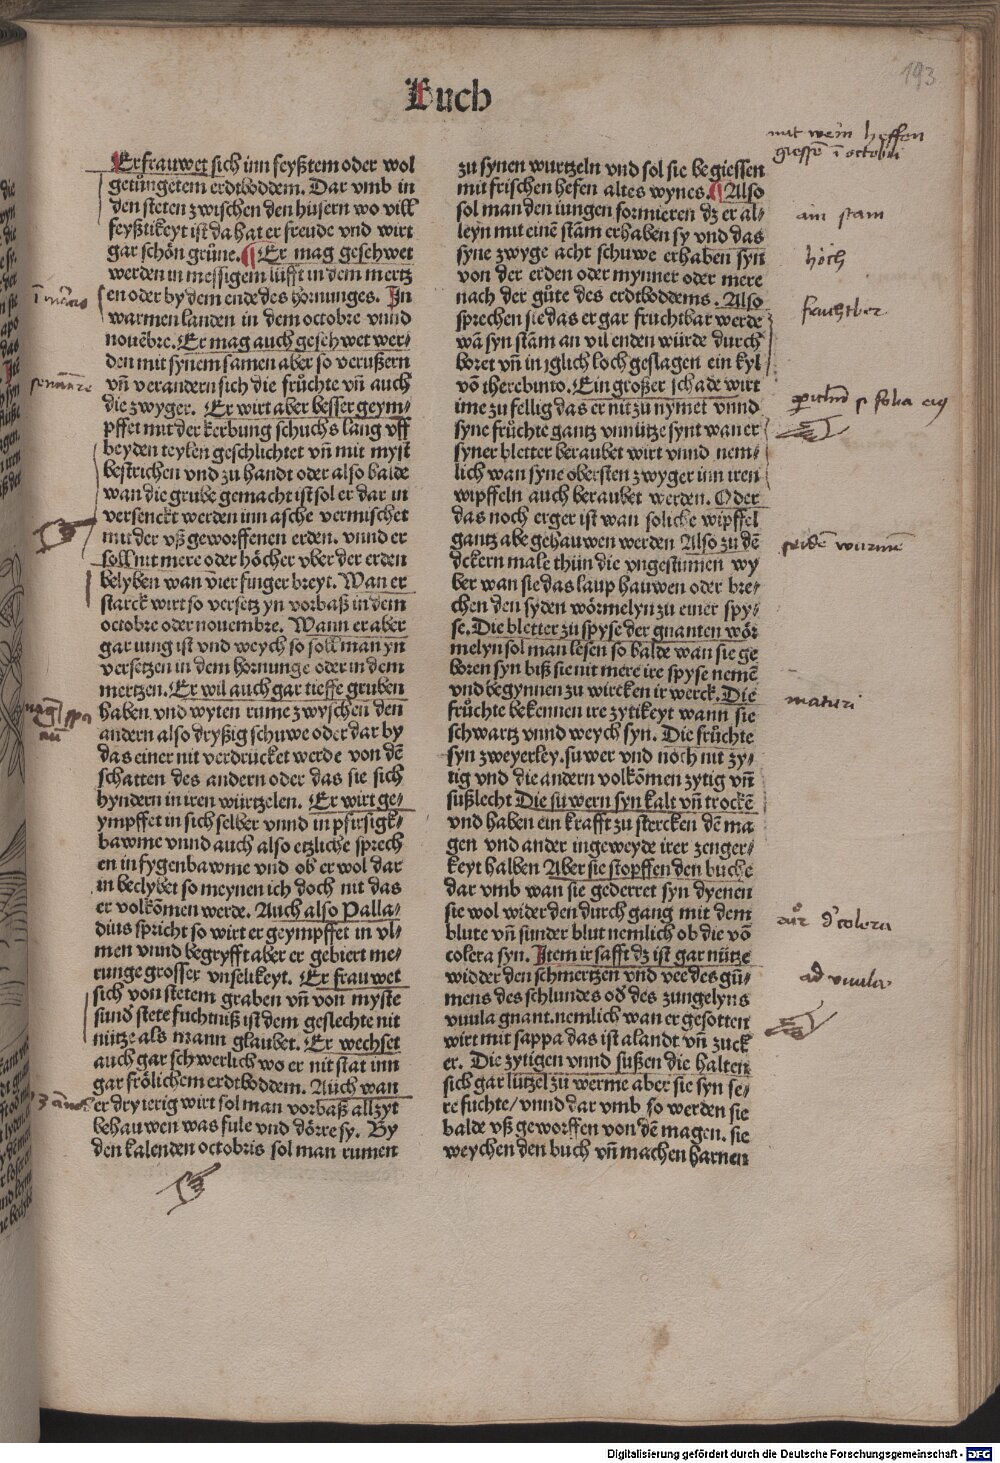 193
Buch
Er frauwet sich inn feyßtem oder wol
getüngetem erdtboddem. Dar vmb in
den steten zwischen den húsern wo vill
feyßtikeyt ist da hat er freude vnd wirt
gar schön grůne. Er mag gesehwet
werden in messigem lüfft in dem mertz
en oder by dem ende des hornunges. In
warmen landen in dem octobre vnnd
nouēbre. Er mag auch gesehwet wer-
den mit synem samen aber so verußern
vñ verandern sich die frůchte vñ auch
die zwyger. Er wirt aber besser geym-
pffet mit der kerbung schuchs lang vff
beyden teylen geschlichtet vñ mit myst
bestrichen vnd zu handt oder also balde
wan die grube gemacht ist sol er dar in
versenckt werden inn asche vermischet
mit der vß geworffenen erden. vnnd er
soll nit mere oder höcher vber der erden
belyben wan vier finger breyt. Wan er
starck wirt so versetz yn vorbaß in dem
octobre oder nouembre. Wann er aber
gar iung ist vnd weych so soll man yn
versetzen in dem hornunge oder in dem
mertzen. Er wil auch gar tieffe gruben
haben vnd wyten rume zwyschen den
andern also dryßig schuwe oder dar by
das einer nit verdrucket werde von dē
schatten des andern oder das sie sich
hyndern in iren würtzelen. Er wirt ge-
ympffet in sich selber vnnd in pfirsigk-
bawme vnnd auch also etzliche sprech
en in fygenbawme vnd ob er wol dar
in beclybet so meynen ich doch nit das
er volkōmen werde. Auch also Palla-
dius spricht so wirt er geympffet in vl-
men vnnd begryfft aber er gebiert me-
runge grosser vnselikeyt. Er frauwet
sich von stetem graben vñ von myste
sunð stete fuchtniß ist dem geslechte nit
nütze als mann glaubet. Er wechset
auch gar schwerlich wo er nit stat inn
gar frölichem erdtboddem. Auch wan
er dry ierig wirt sol man vorbaß allzyt
behauwen was fule vnd dörre sy. By
den kalenden octobris sol man rumen
zu synen wurtzeln vnd sol sie begiessen
mit frischen hefen altes wynes. Also
sol man den iungen formieren dz er al-
leyn mit einē stam erhaben sy vnd das
syne zwyge acht schuwe erhaben syn
von der erden oder mynner oder mere
nach der gůte des erdtboddems. Also
sprechen sie das er gar fruchtbar werde
wā syn stām an vil enden würde durch
boret vñ in jglich loch geslagen ein kyl
vō therebinto. Ein großer schade wirt
ime zu fellig das er nit zu nymet vnnd
syne frůchte gantz vnnütze synt wan er
syner bletter beraubet wirt vnnd nem-
lich wan syne obersten zwyger inn iren
wipffeln auch beraubet werden. Oder
das noch erger ist wan soliche wipffel
gantz abe gehauwen werden Also zu dē
dckern male thün die vngestimen wy
ber wan sie das laup hauwen oder bre-
chen den syden wörmelyn zu einer spy-
se. Die bletter zu spyse der gnanten wör
melyn sol man lesen so balde wan sie ge
boren syn biß sie nit mere ire spyse nemē
vnd begynnen zu wircken ir werck. Die
frůchte bekennen ire zytikeyt wann sie
schwartz vnnd weych syn. Die frůchte
syn zweyerley. suwer vnd noch nit zy-
tig vnd die andern volkōmen zytig vñ
sußlecht Die suwern syn kalt vñ trockē
vnd haben ein krafft zu stercken dē ma
gen vnd ander ingeweyde irer zenger-
keyt halben Aber sie stopffen den buche
dar vmb wan sie gederret syn dyenen
sie wol wider den durch gang mit dem
blute vñ sunder blut nemlich ob die vō
colera syn. Item ir safft dz ist gar nütze
widder den schmertzen vnd vee des gů-
mens des schlundes oð des zungelyns
vuula gnant. nemlich wan er gesotten
wirt mit sappa das ist alandt vñ zuck
er. Die zytigen vnnd sußen die halten
sich gar lützel zu werme aber sie syn se-
re fuchte/ vnnd dar vmb so werden sie
balde vß geworffen von dē magen. sie
weychen den buch vñ machen harnen
mit wein heffen
giessē ī octobri
ain stam
höch
feuchtber
seidē wurmē
maturi
colera
ad vuula
Digitalisierung gefördert durch die Deutsche Forschungsgemeinschaft - DFG